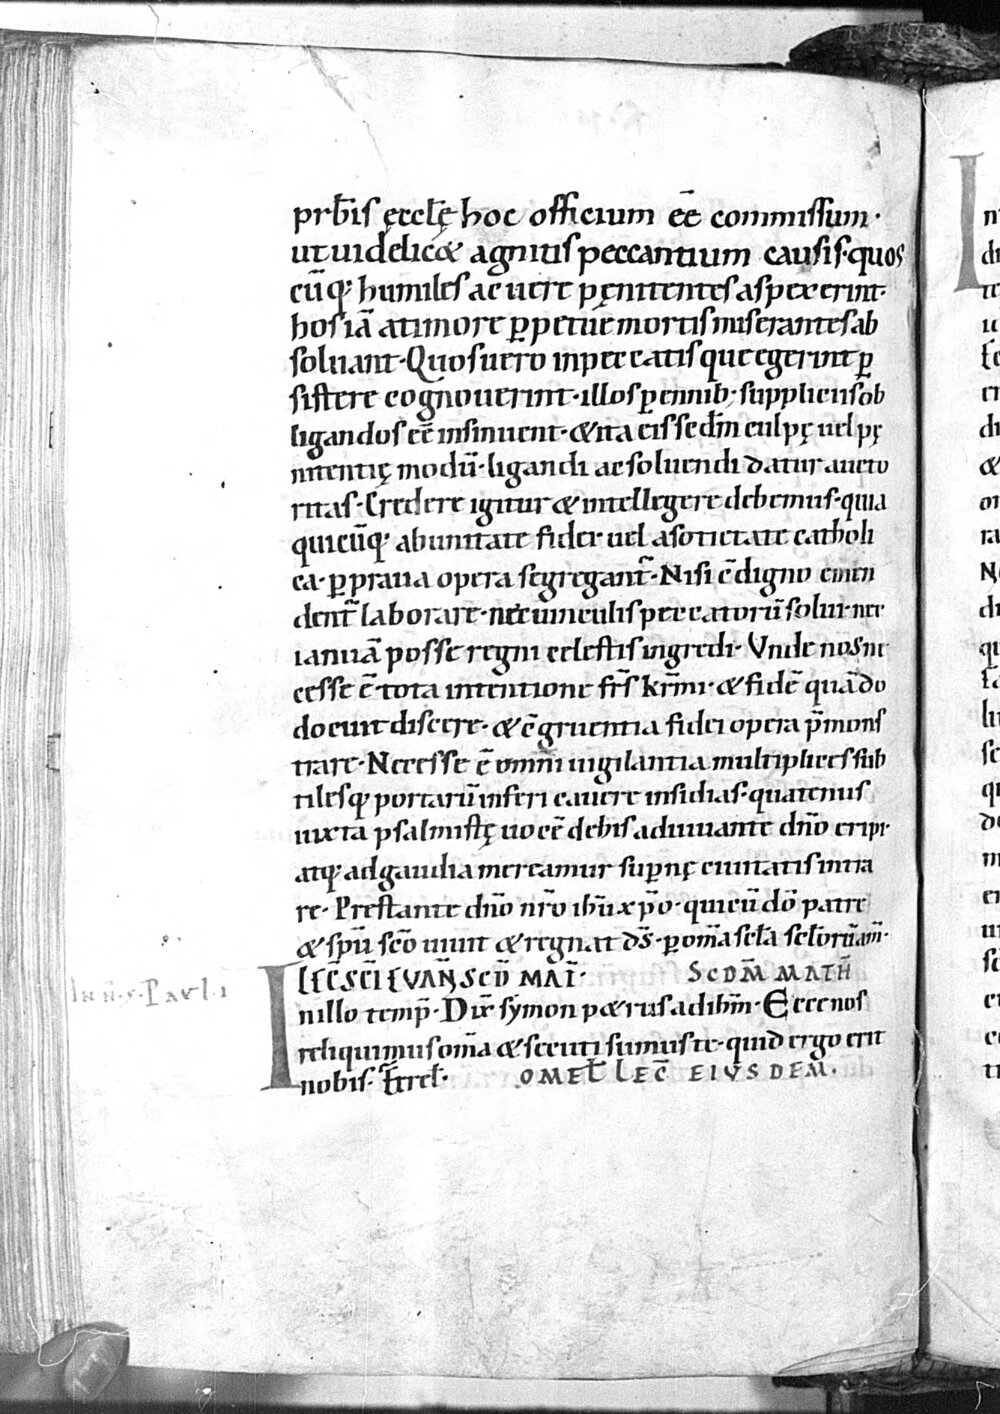 prb̄is ęccl̄ę hoc officium eē commissum·
ut uidelic& agnitis peccantium causis·quos
cūq; humiles ac uere pęnitentes aspexerint·
hos iā a timore ꝑpetuę mortis miserantes ab
soluant·Quos uero in peccatis que egerint ꝑ
sistere cognouerint·illos ꝑennib; suppliciis ob
ligandos eē insinuent·&ita eis sed̄m culpę uel pę
nitentię modū·ligandi ac soluendi datur aucto
ritas·Credere igitur & intellegere debemus·quia
quicūq; ab unitate fidei uel a sotietate catholi
ca·ꝑ praua opera segregant̄·Nisi c̄digno emen
dent̄ laborare·nec uinculis peccatorū solui·nec
ianuā posse regni celestis ingredi·Vnde nos ne
cesse ē tota intentione fr̄s kr̄mi·& fidē quā do
docuit discere·& c̄gruentia fidei opera p̄mons
trare·Necesse ē omni uigilantia multiplices sub
tilesq; portarū inferi cauere insidias·quatenus
iuxta psalmistę uocē de his adiuuante dn̄o eripi·
atq; ad gaudia mereamur suꝑnę ciuitatis intra
re·Prestante dn̄o nr̄o ihū xp̄o·qui cū dō patre
& sp̄u sc̄o uiuit & regnat ds̄·ꝑ om̄a sc̄la scl̄orū am̄·
LEC SC̄I EVAN̄ SCD̄ MAT̄· SCDM̄ MATH̄
Inillo temp̄·Dix̄ symon p&rus ad ihm̄·Ecce nos
reliquimus om̄a & secuti sumus te·quid ergo erit
nobis·Et rel̄· OMEL̄ LEC̄ EIVSDEM·
INN·S·PAVLI